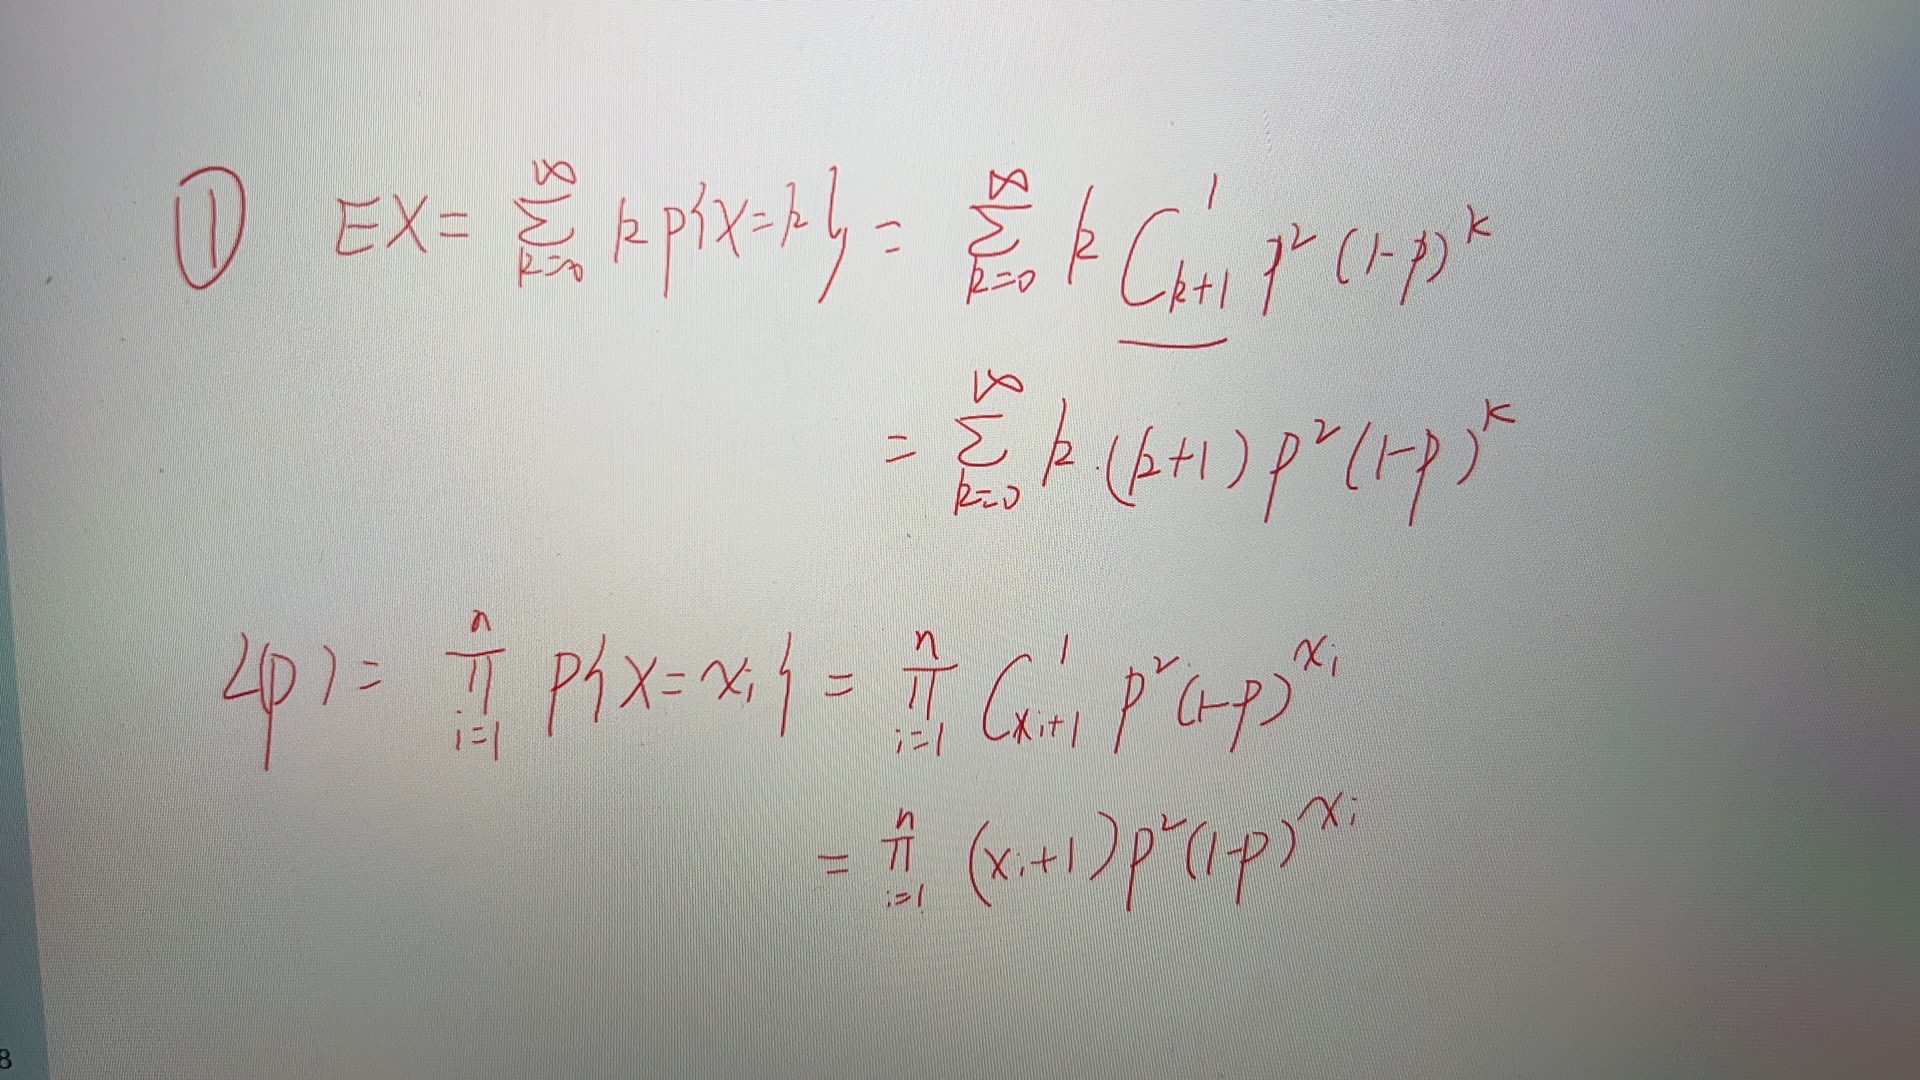 ① EX = ∑_{k=0}^{∞} k P{X=k} = ∑_{k=0}^{∞} k C_{k+1}^{1} p² (1-p)^k
= ∑_{k=0}^{∞} k·(k+1) p² (1-p)^k
L(p) = ∏_{i=1}^{n} P{X=x_i} = ∏_{i=1}^{n} C_{x_i+1}^{1} p² (1-p)^{x_i}
= ∏_{i=1}^{n} (x_i+1) p² (1-p)^{x_i}
8